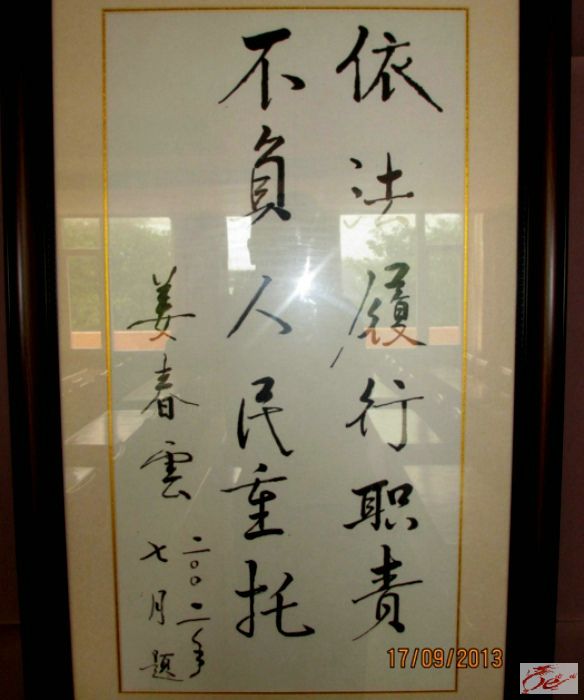 依法履行职责
不负人民重托
姜春雲
二〇〇二年
七月题
17/09/2013